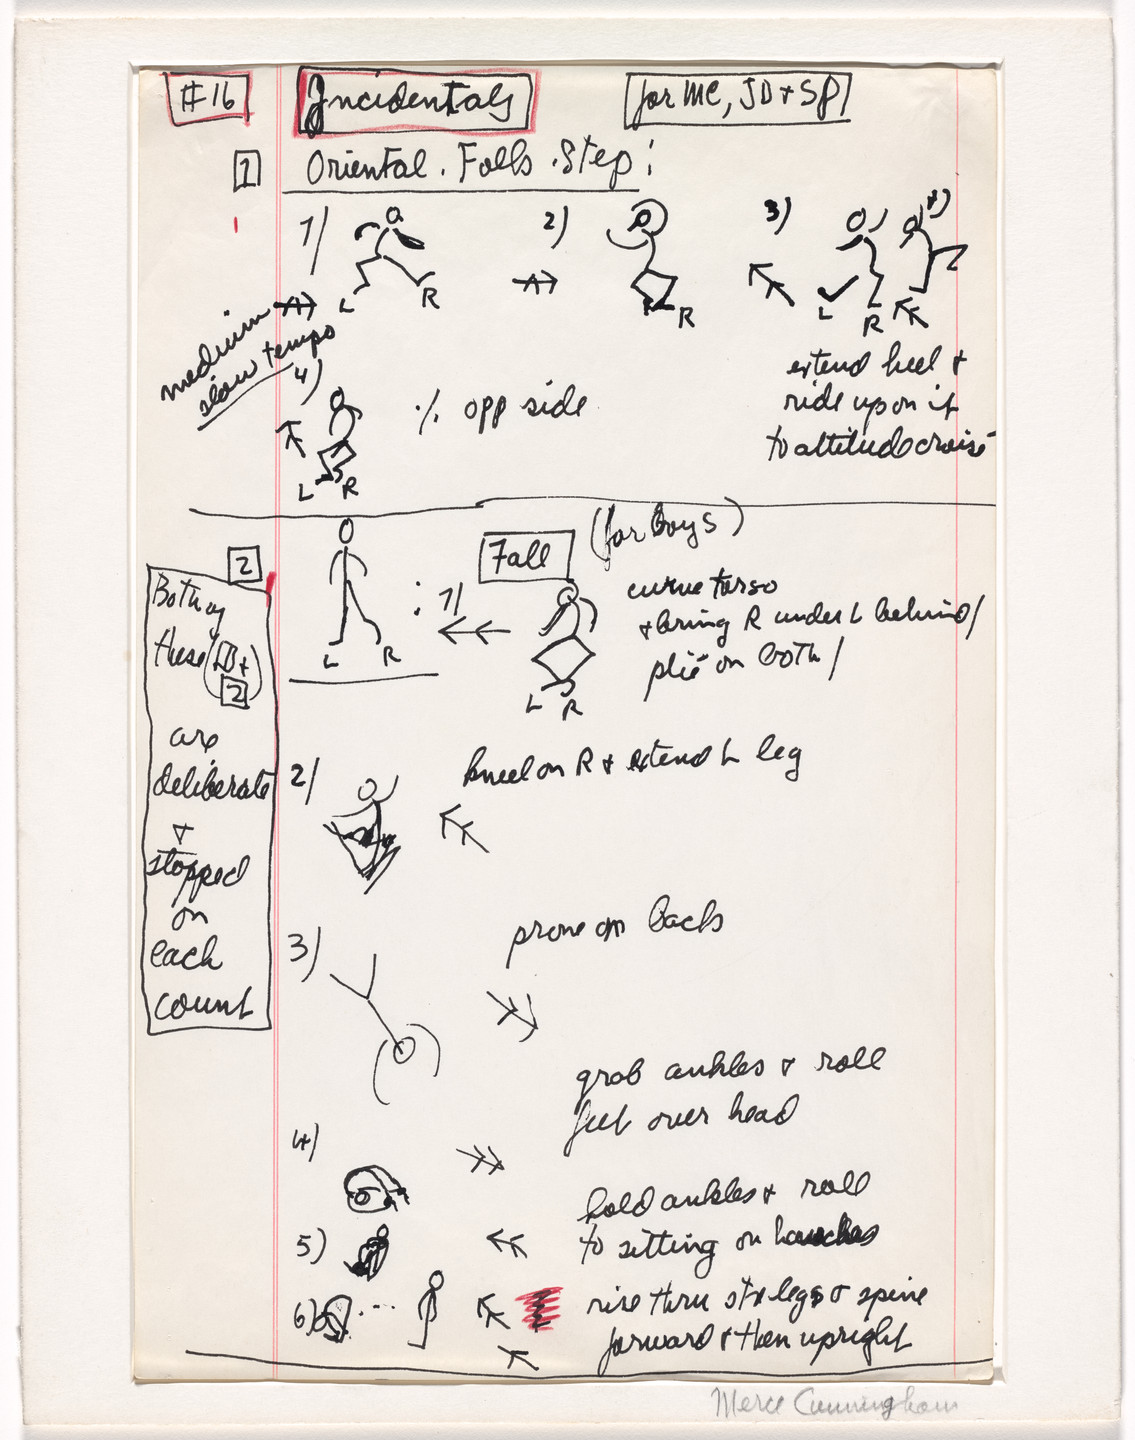 #16
Incidentals
for MC, JD + SP
1
Oriental. Falls. Step:
1)
2)
3)
4)
L
R
R
L
R
medium
slow tempo
extend heel +
ride up on it
to attitude croisé
4)
% opp side
L R
2
Fall
(for boys)
L R
: 1)
curve torso
+ bring R under L behind/
plié on both/
L R
Both of
these (1 +
2)
are
deliberate
+
stopped
on
each
count
2)
kneel on R + extend L leg
3)
prone on back
grab ankles + roll
feet over head
4)
hold ankles + roll
5)
to sitting on haunches
6)
rise thru str legs + spine
forward + then upright
Merce Cunningham